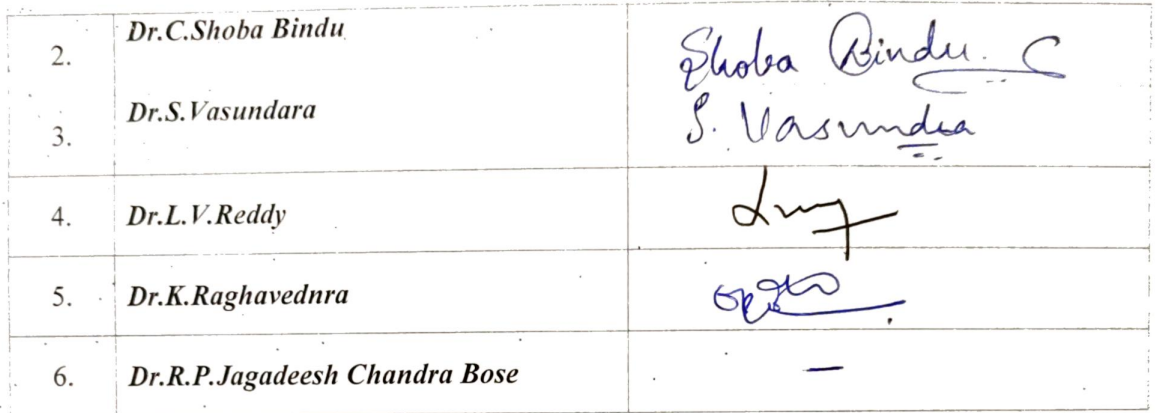 2. Dr.C.Shoba Bindu Shoba Bindu. C
3. Dr.S.Vasundara S. Vasundra
4. Dr.L.V.Reddy
5. Dr.K.Raghavednra
6. Dr.R.P.Jagadeesh Chandra Bose —